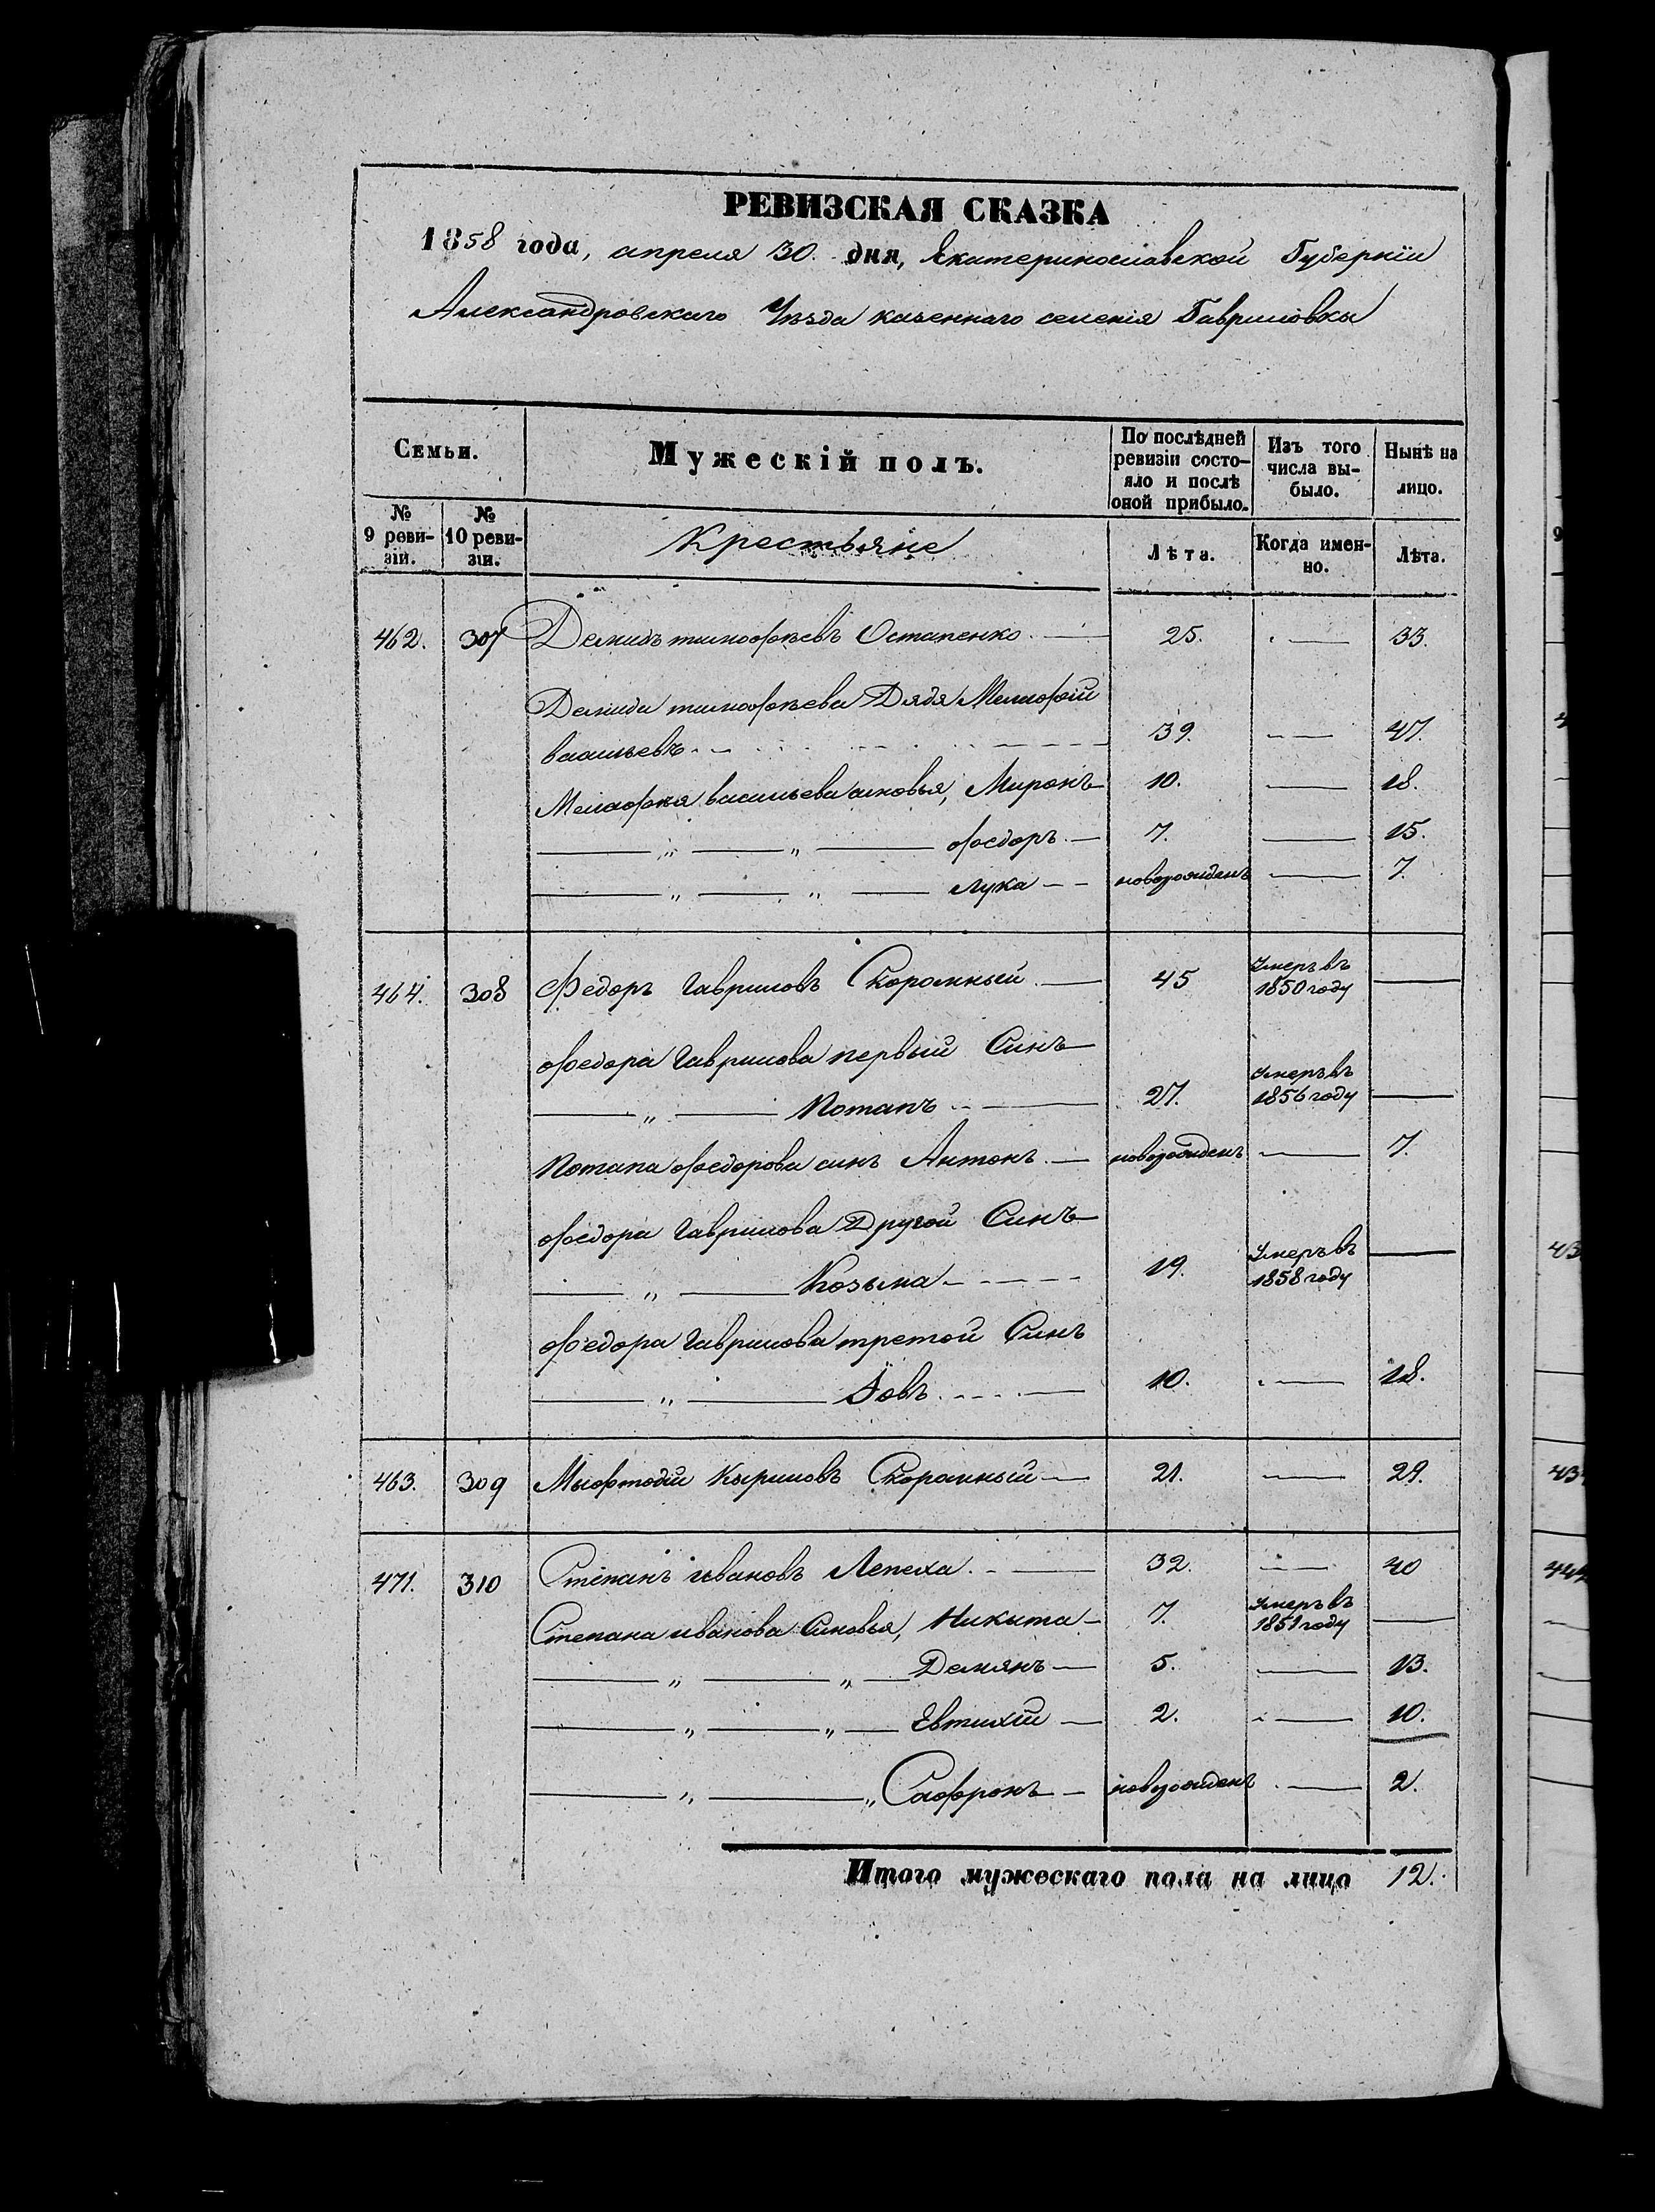 РЕВИЗСКАЯ СКАЗКА
1858 года, апреля 30. дня, Екатеринославской Губерніи
Александровскаго Уѣзда казеннаго селенія Гавриловки
Семьи.
Мужескій полъ.
По послѣдней ревизіи состо-яло и послѣ оной прибыло.
Изъ того числа вы-было.
Нынѣ на лицо.
№ 9 реви-зіи.
№ 10 реви-зіи.
Крестьяне
Лѣта.
Когда имен-но.
Лѣта.
462. 307 Демидъ тимофѣевъ Остапенко 25. — 33.
Демида тимофѣева Дядя
васильевъ 39. — 47.
васильева сыновья, Миронъ 10. — 18.
— „ — „ — федоръ — 7. — 15.
— „ — „ — лука — новорожденъ — 7.
464. 308 Федоръ Гавриловъ Скоромный — 45 Умеръ въ 1850 году —
федора Гаврилова первый Синъ
— „ — Потапъ — 27. Умеръ въ 1856 году —
Потапа федорова синъ Антонъ — новорожденъ — 7.
федора Гаврилова Другой Синъ
— „ — Козьма — 19. Умеръ въ 1858 году —
федора Гаврилова третой Синъ
— „ — Іовъ — 10. — 18.
463. 309 Мыфтодій Кыриловъ Скоромный — 21. — 29.
471. 310 Степанъ ивановъ Лепеха — 32. — 40
Степана иванова Синовья, Никыта — 7. Умеръ въ 1851 году —
— „ — „ — Демянъ — 5. — 13.
— „ — „ — Евтихій — 2. — 10.
— „ — „ Сафронъ — новорожденъ — 2.
Итого мужескаго пола на лицо 12.